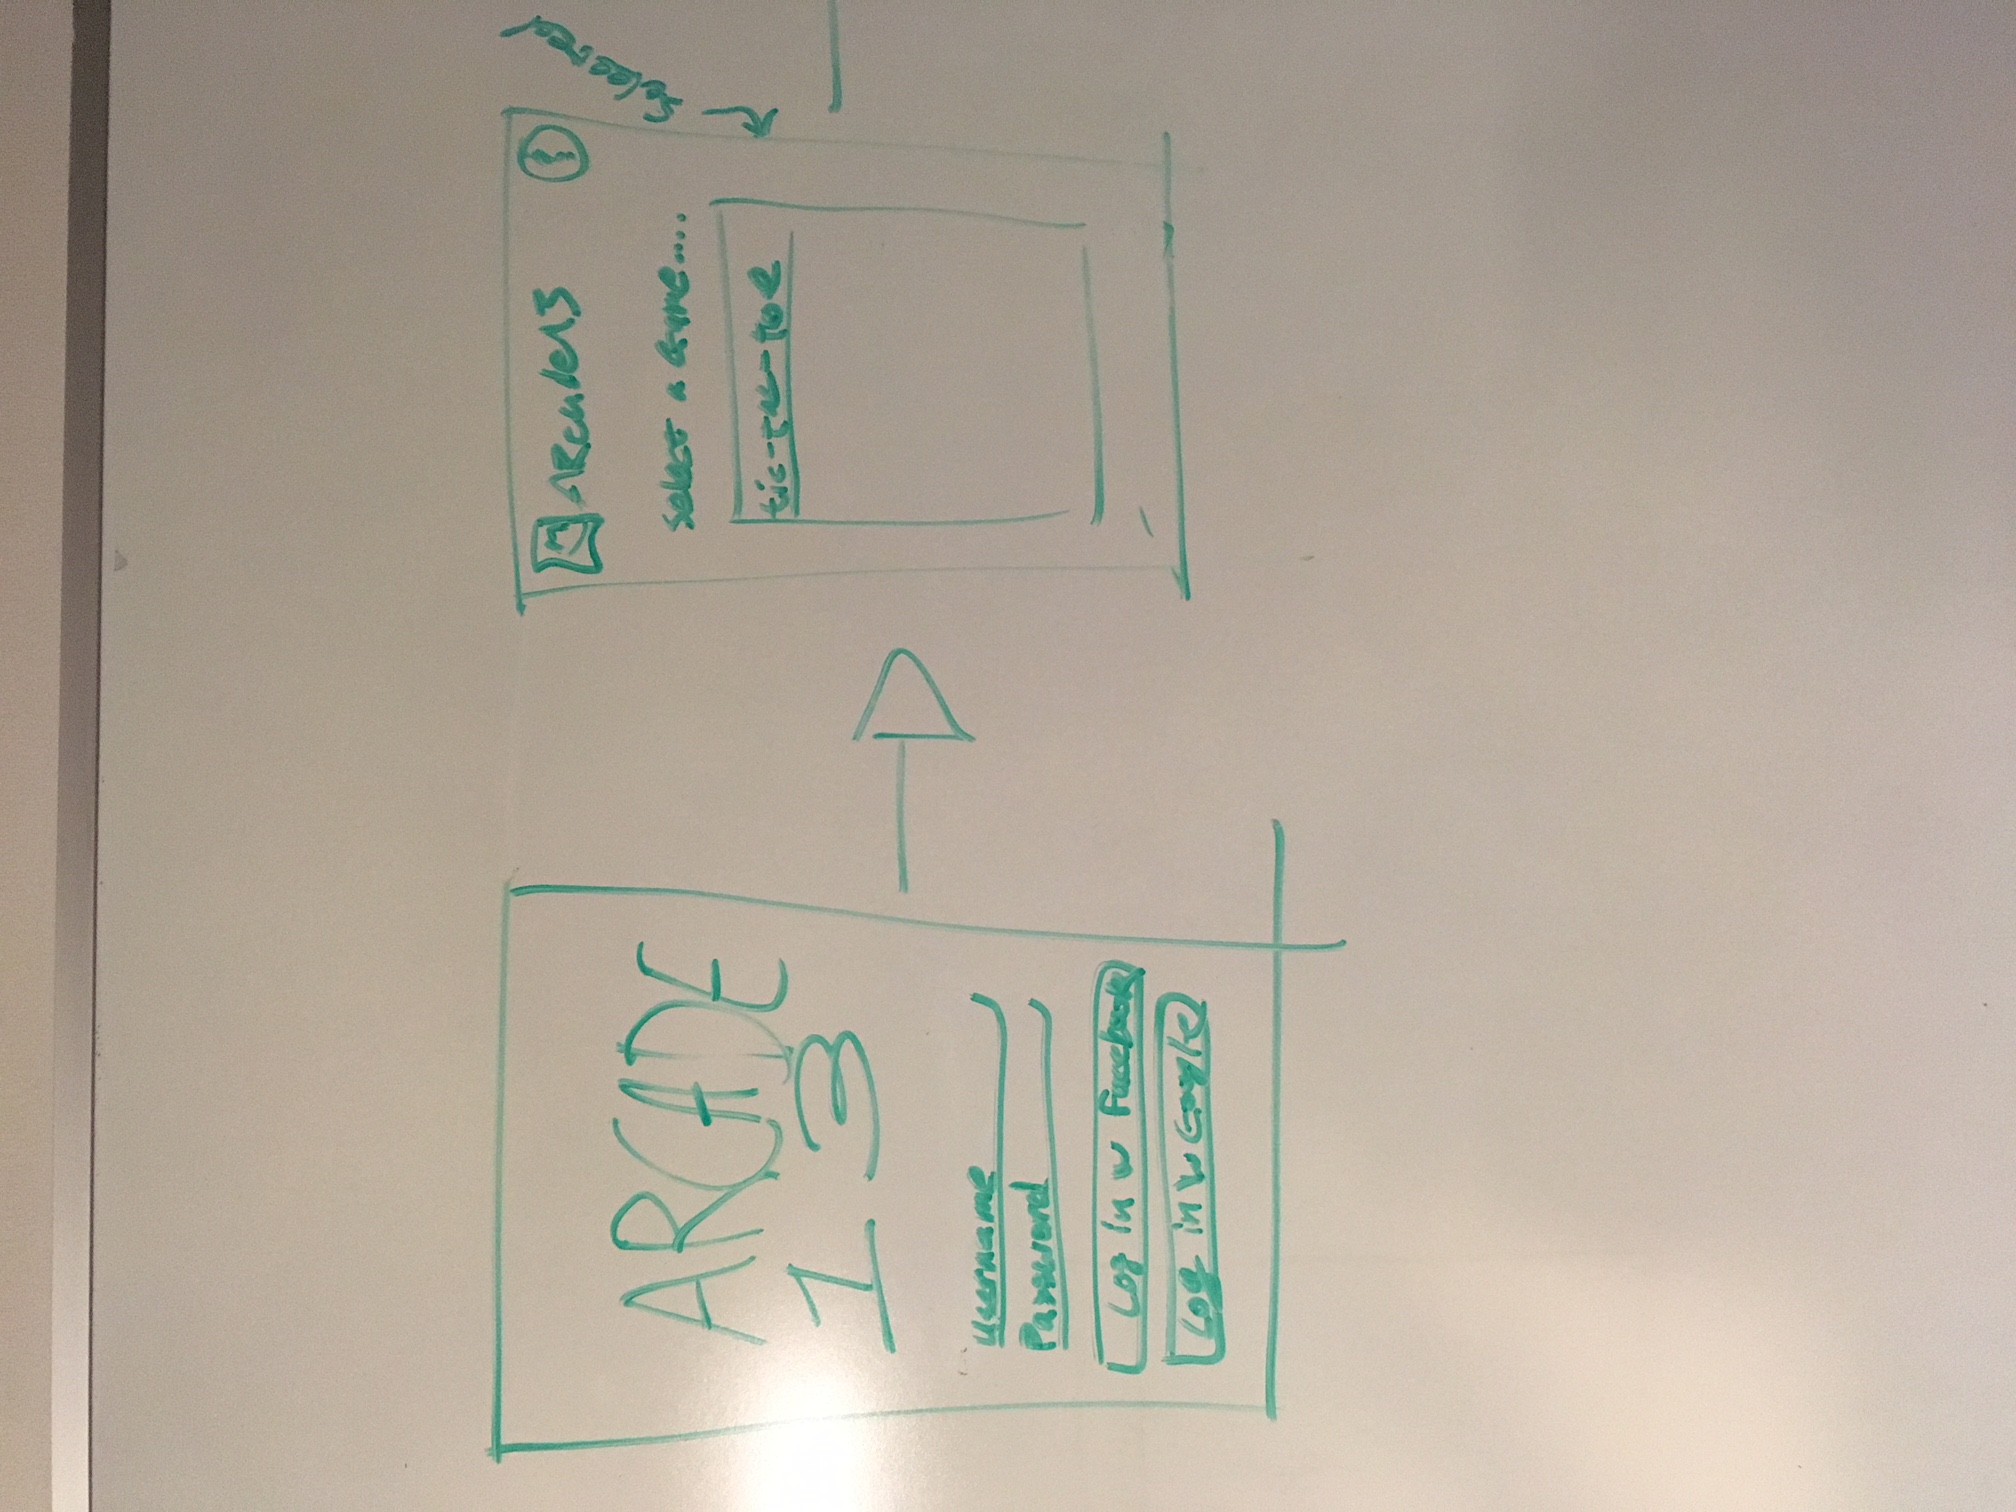 ARCADE
13
Username
Password
Log in w Facebook
Log in w Google
ARcade13
Select a Game....
tic-tac-toe
Selected